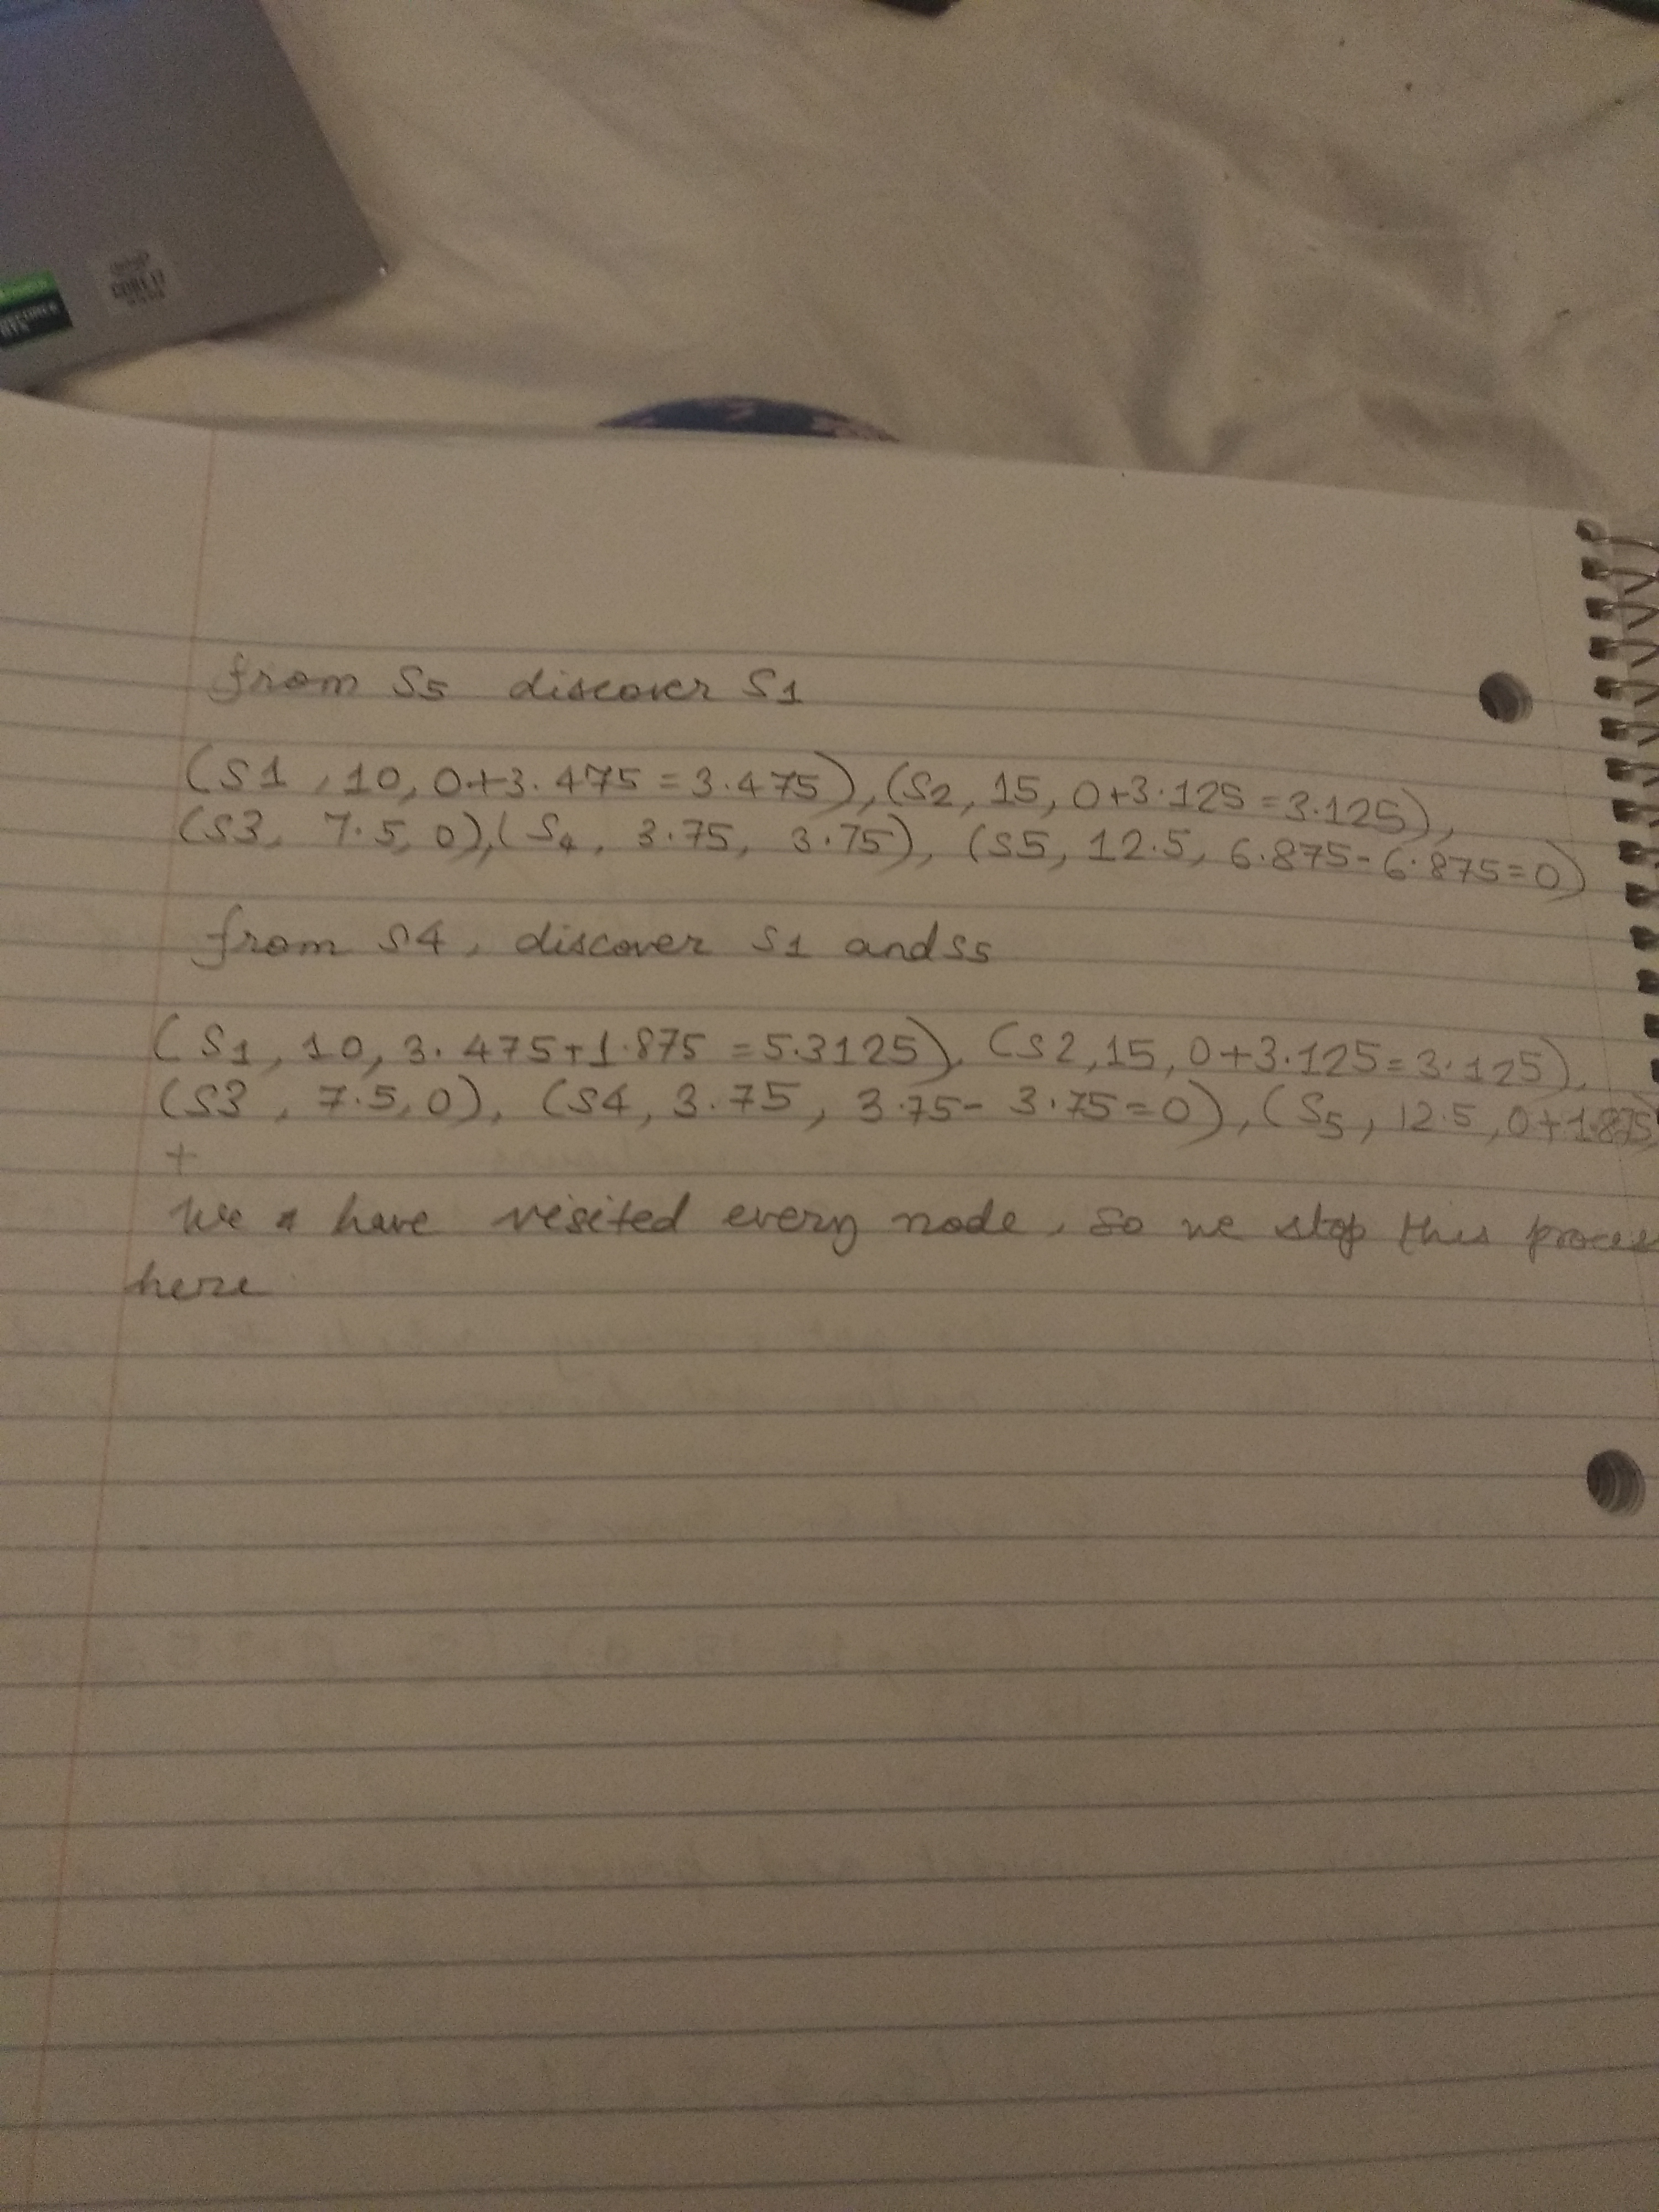 CORE i7
from S5 discover S1
(S1, 10, 0+3.475 = 3.475), (S2, 15, 0+3.125 = 3.125),
(S3, 7.5, 0), (S4, 3.75, 3.75), (S5, 12.5, 6.875-6.875=0)
from S4, discover S1 and S5
(S1, 10, 3.475+1.875 = 5.3125), (S2, 15, 0+3.125=3.125),
(S3, 7.5, 0), (S4, 3.75, 3.75-3.75=0), (S5, 12.5, 0+1.875)
+
We have visited every node, so we stop this proces
here